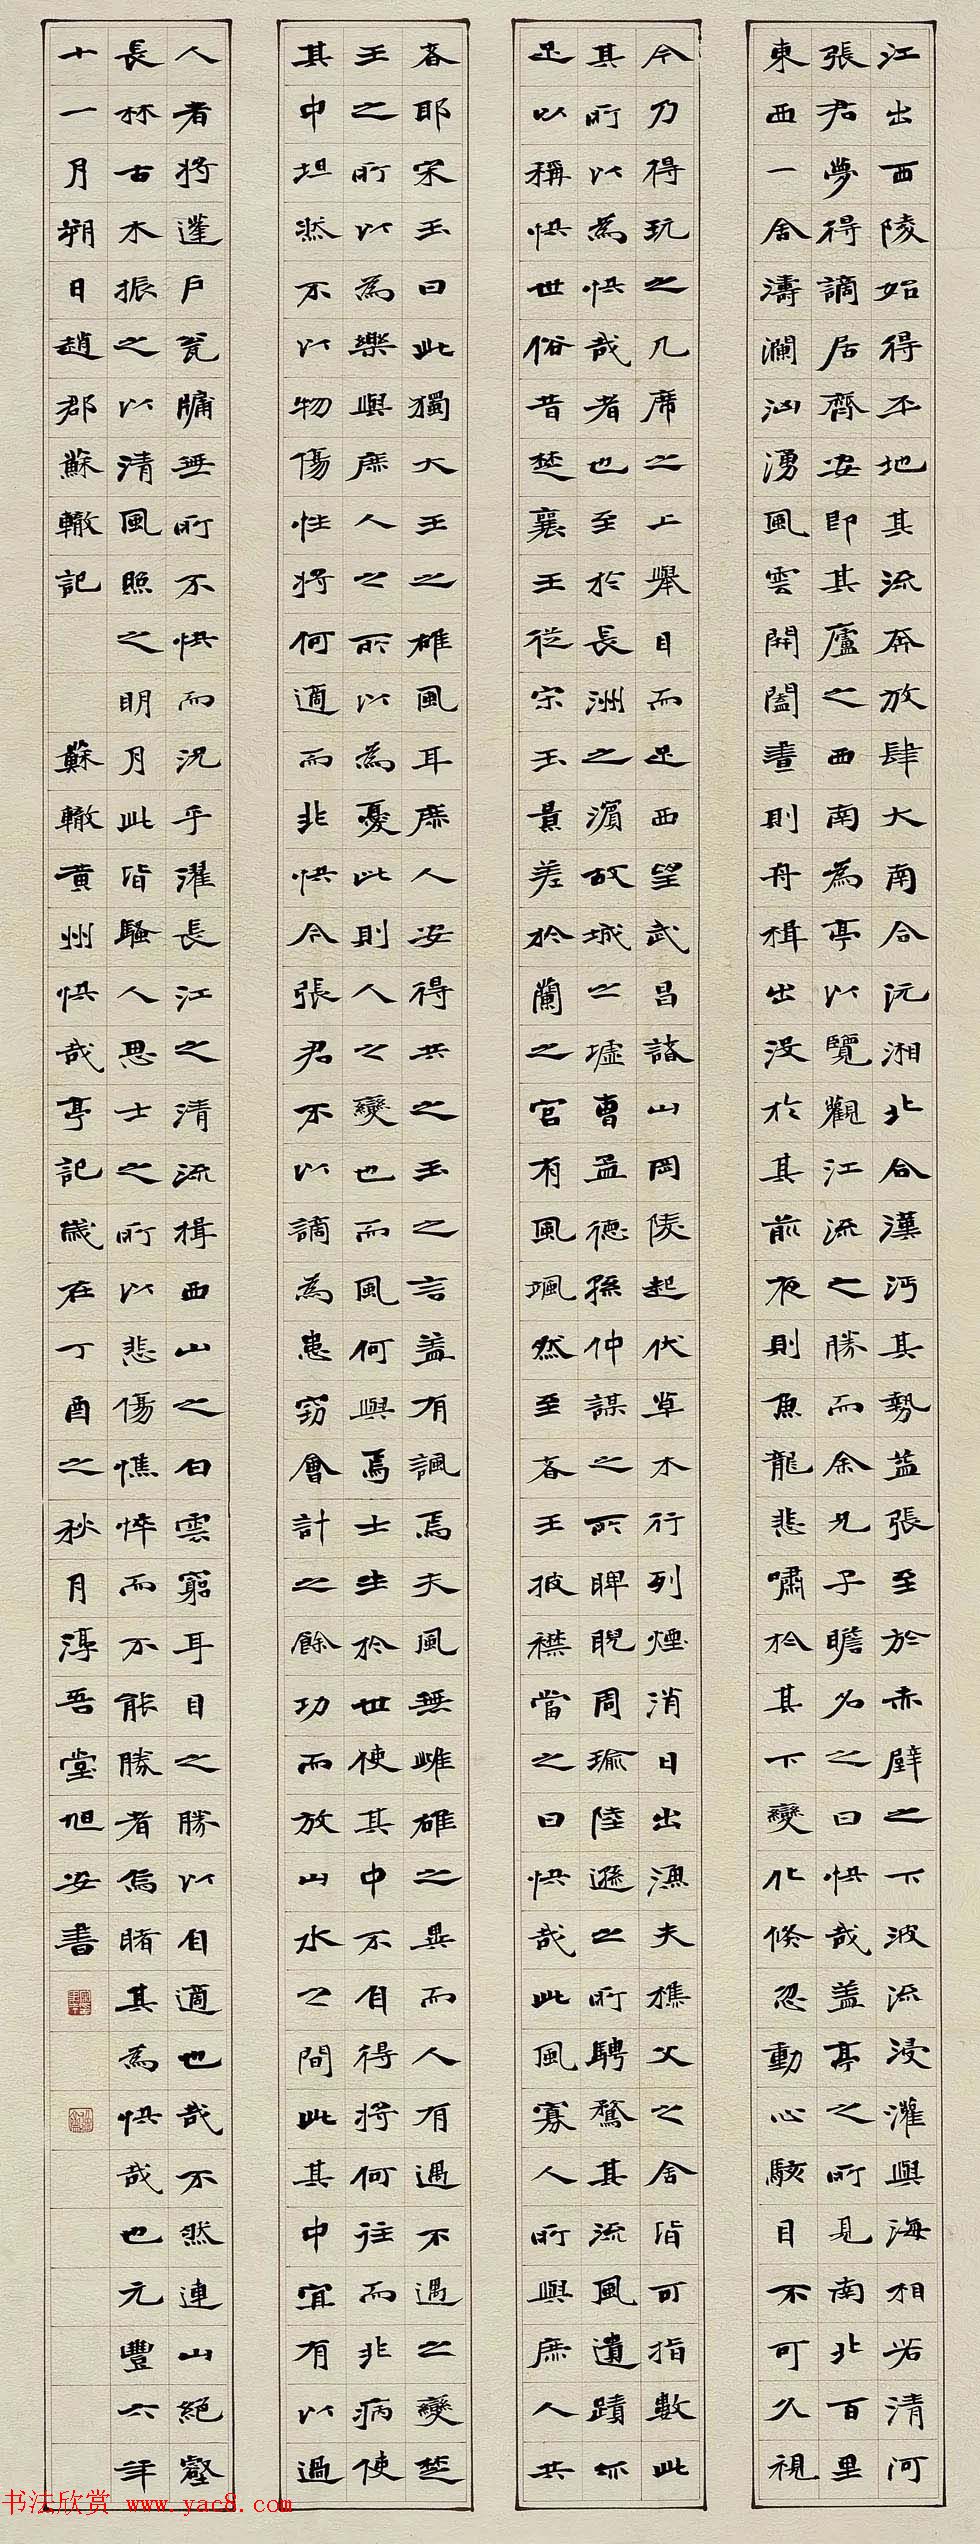 江出西陵始得平地其流奔放肆大南合沅湘北合漢沔其勢益張至於赤壁之下波流浸灌與海相若清河
張君夢得謫居齊安即其廬之西南為亭以覽觀江流之勝而余兄子瞻名之曰快哉蓋亭之所見南北百里
東西一舍濤瀾洶湧風雲開闔晝則舟楫出沒於其前夜則魚龍悲嘯於其下變化倏忽動心駭目不可久視
今乃得玩之几席之上舉目而足西望武昌諸山岡陵起伏草木行列煙消日出漁夫樵父之舍皆可指數此
其所以為快哉者也至於長洲之濱故城之墟曹孟德孫仲謀之所睥睨周瑜陸遜之所騁騖其流風遺蹟亦
足以稱快世俗昔楚襄王從宋玉景差於蘭之宮有風颯然至者王披襟當之曰快哉此風寡人所與庶人共
者耶宋玉曰此獨大王之雄風耳庶人安得共之玉之言蓋有諷焉夫風無雌雄之異而人有遇不遇之變楚
王之所以為樂與庶人之所以為憂此則人之變也而風何與焉士生於世使其中不自得將何往而非病使
其中坦然不以物傷性將何適而非快今張君不以謫為患竊會計之餘功而放山水之間此其中宜有以過
人者將蓬戶瓮牖無所不快而況乎濯長江之清流楫西山之白雲窮耳目之勝以自適也哉不然連山絕壑
長林古木振之以清風照之明月此皆騷人思士之所以悲傷憔悴而不能勝者烏睹其為快哉也元豐六年
十一月朔日趙郡蘇轍記 蘇轍黃州快哉亭記歲在丁酉之秋月淳吾堂旭安書
书法欣赏 www.yac8.com